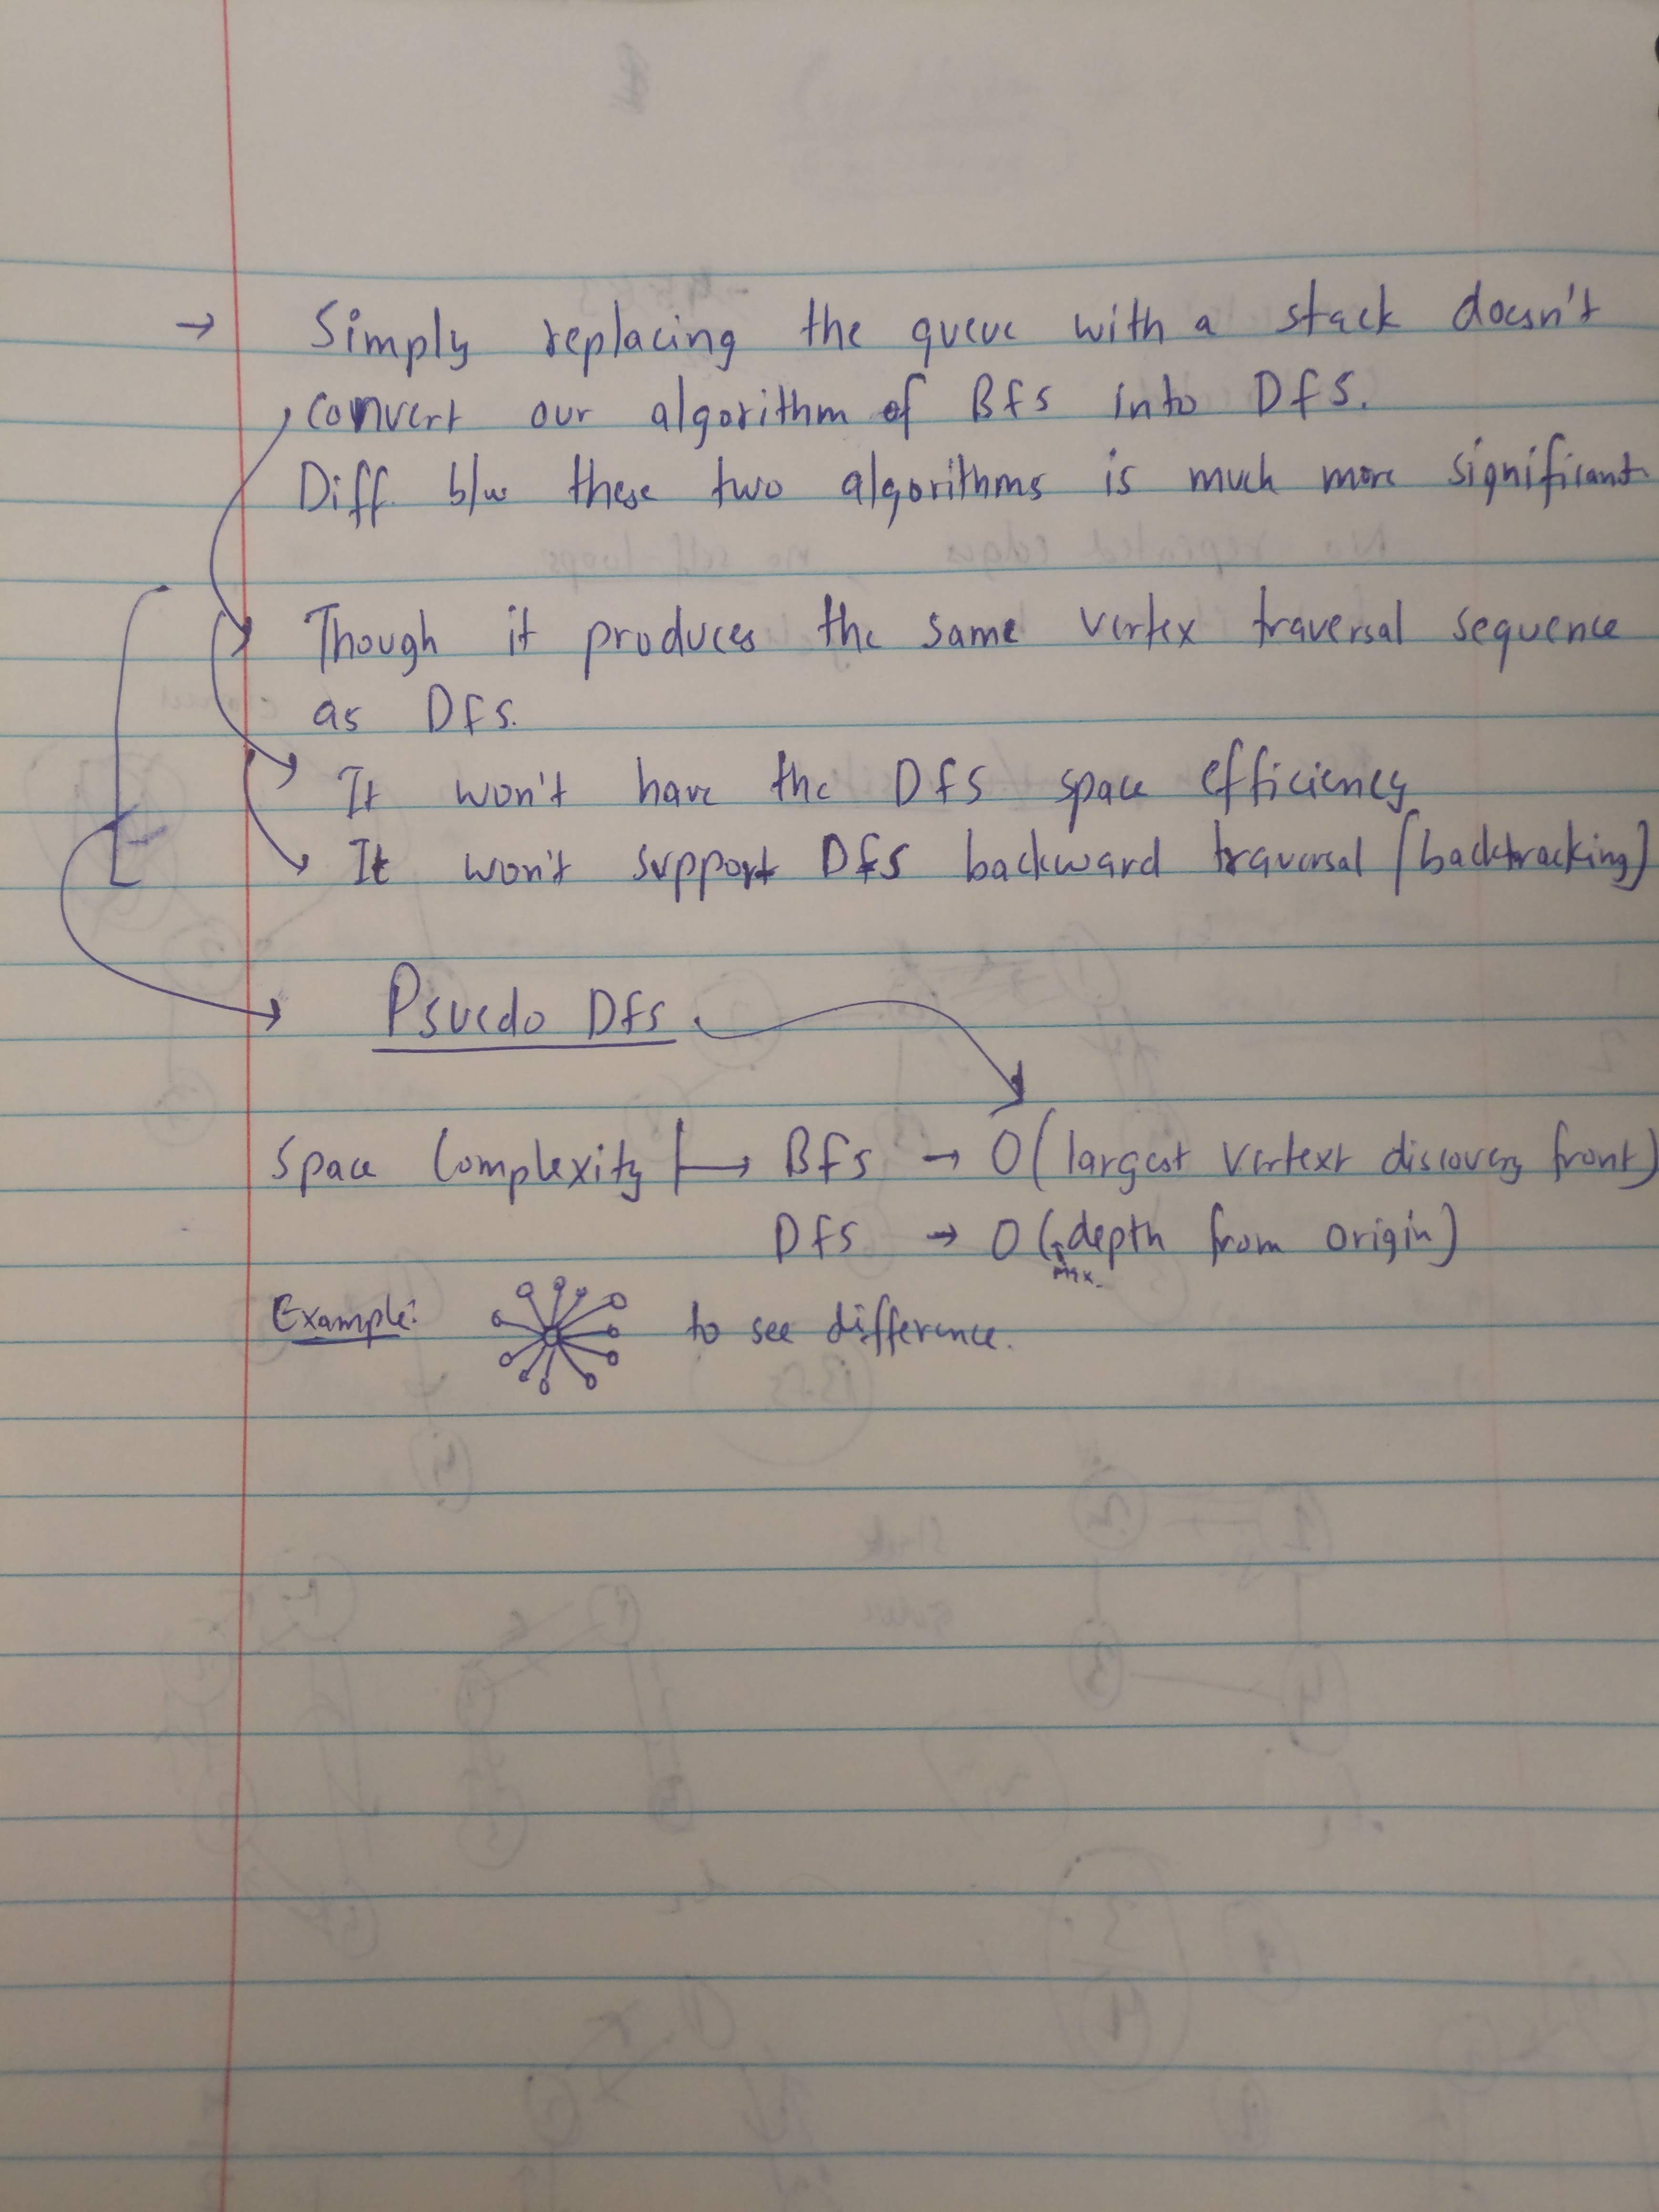 → Simply replacing the queue with a stack doesn't
convert our algorithm of Bfs into Dfs.
Diff. b/w these two algorithms is much more significant.
Though it produces the same vertex traversal sequence
as Dfs.
It won't have the Dfs space efficiency
It won't support Dfs backward traversal [backtracking]
Psuedo Dfs.
Space Complexity → Bfs → O(largest vertext discovery front)
Dfs → O(max. depth from origin)
Example: to see difference.